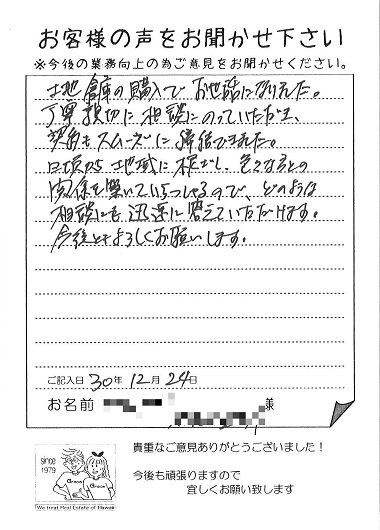 お客様の声をお聞かせ下さい
※今後の業務向上の為ご意見をお聞かせください。
土地、倉庫の購入でお世話になりました。
丁寧、親切に相談にのっていただき、
契約もスムーズに締結できました。
日頃から地域に根ざし、色々な方との
関係を築いていらっしゃるので、どのような
相談にも迅速に答えていただけます。
今後ともよろしくお願いします。
ご記入日 30年 12月 24日
お名前 様
since
1979
Green
Green
We treat Real Estate of Hawaii
貴重なご意見ありがとうございました！
今後も頑張りますので
宜しくお願い致します